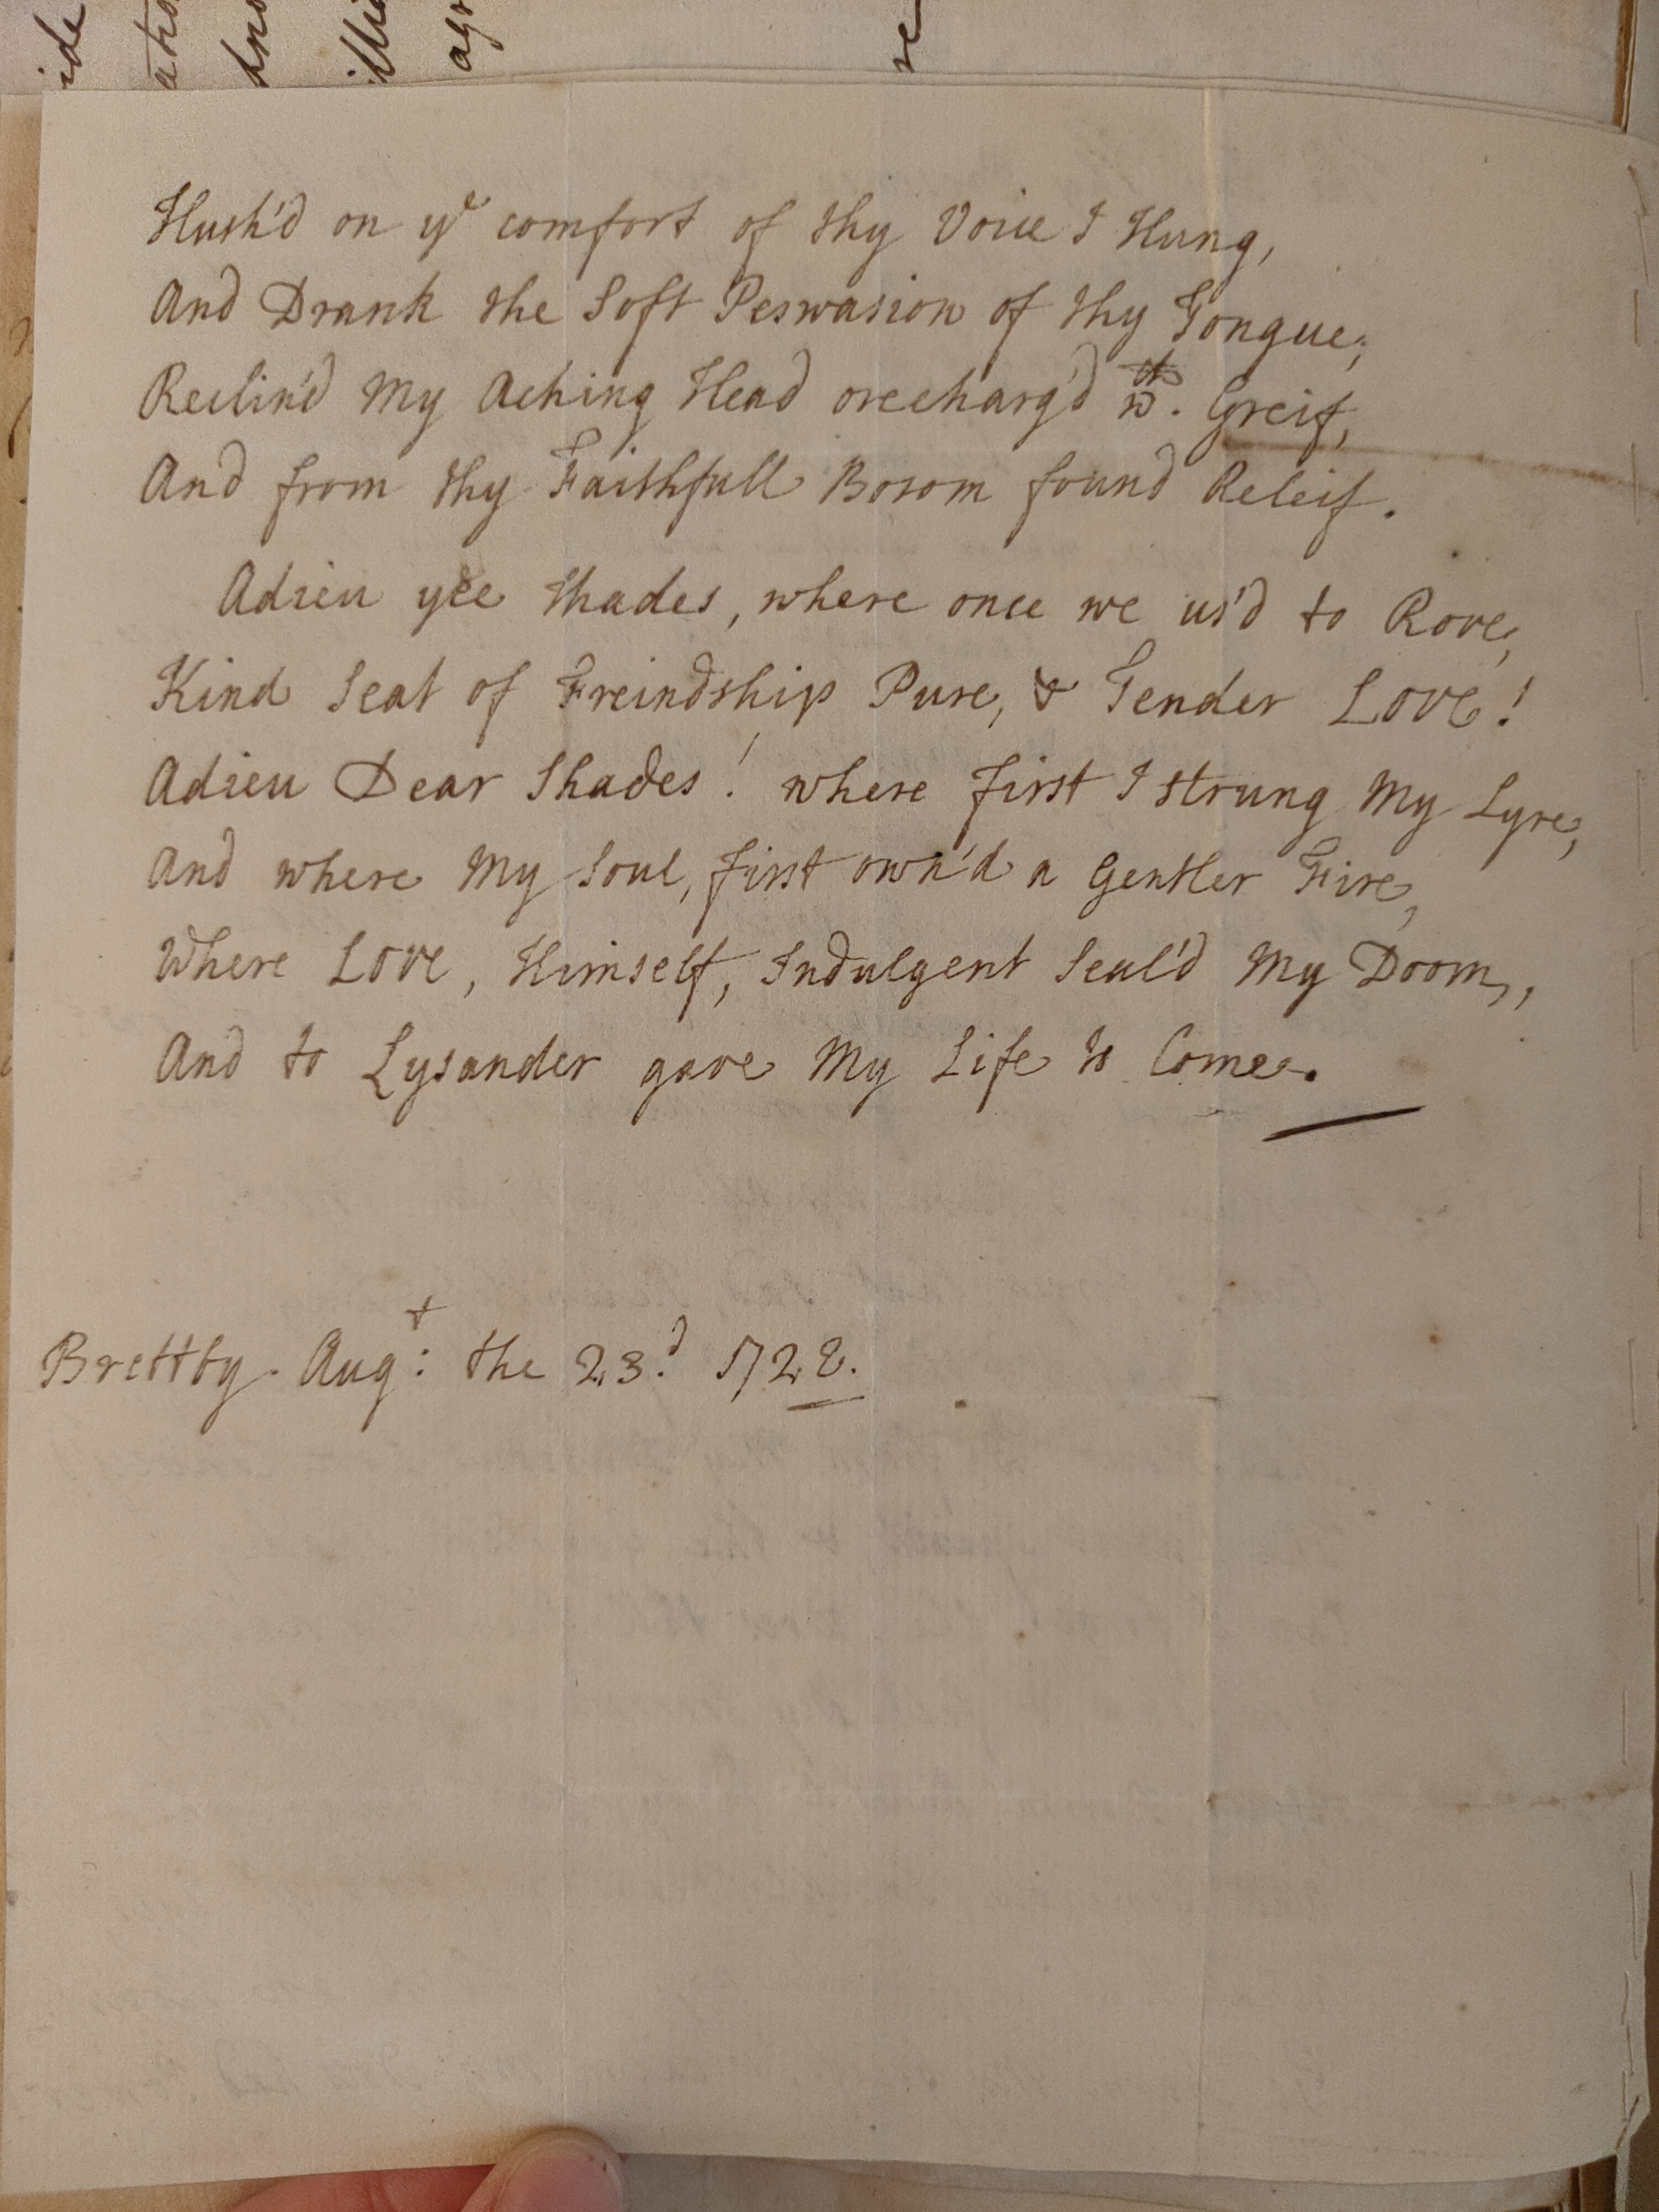 Hush'd on yᵉ comfort of thy Voice I Hung,
And Drank the Soft Perswasion of thy Tongue;
Reclin'd My Aching Head orecharg'd wᵗʰ. Greif,
And from thy Faithfull Bosom found Releif.
Adieu yee Shades, where once we us'd to Rove,
Kind Seat of Freindship Pure, & Tender Love!
Adieu Dear Shades! where first I strung My Lyre,
And where My Soul, first own'd a Gentler Fire,
Where Love, Himself, Indulgent Seal'd My Doom,
And to Lysander gave My Life to Come.
Brettby. Augᵗ: the 23.ᵈ 1728.